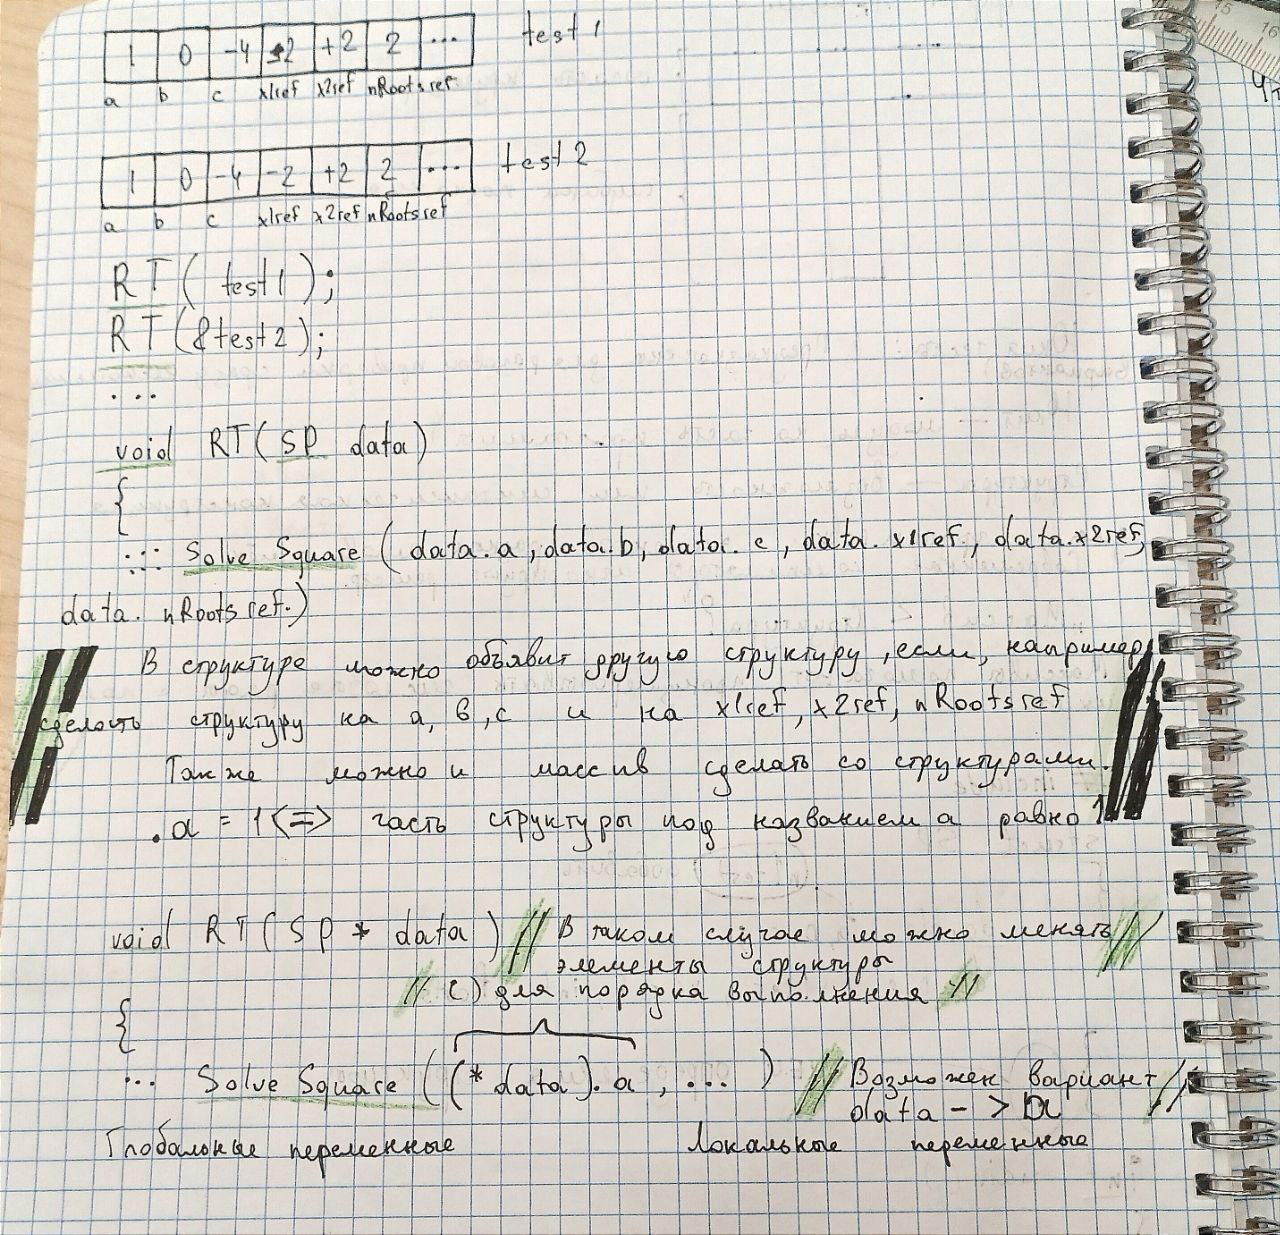 1 0 -4 -2 +2 2 ... test 1
a b c x1ref x2ref nRoots ref
1 0 -4 -2 +2 2 ... test 2
a b c x1ref x2ref nRoots ref
RT( test1 );
RT(&test2);
...
void RT( SP data)
{
... Solve Square ( data.a, data.b, data.c, data.x1ref, data.x2ref,
data. nRoots ref.)
// В структуре можно объявит другую структуру, если, например,
сделать структуру на a, b, c и на x1ref, x2ref, nRootsref
Также можно и массив сделать со структурами.
.a = 1 <=> часть структуры под названием a равно 1 //
void RT( SP * data) // В таком случае можно менять //
элементы структуры
// () для порядка выполнения //
{
... Solve Square ((*data).a, ... ) // Возможен вариант //
data -> a
Глобальные переменные Локальные переменные